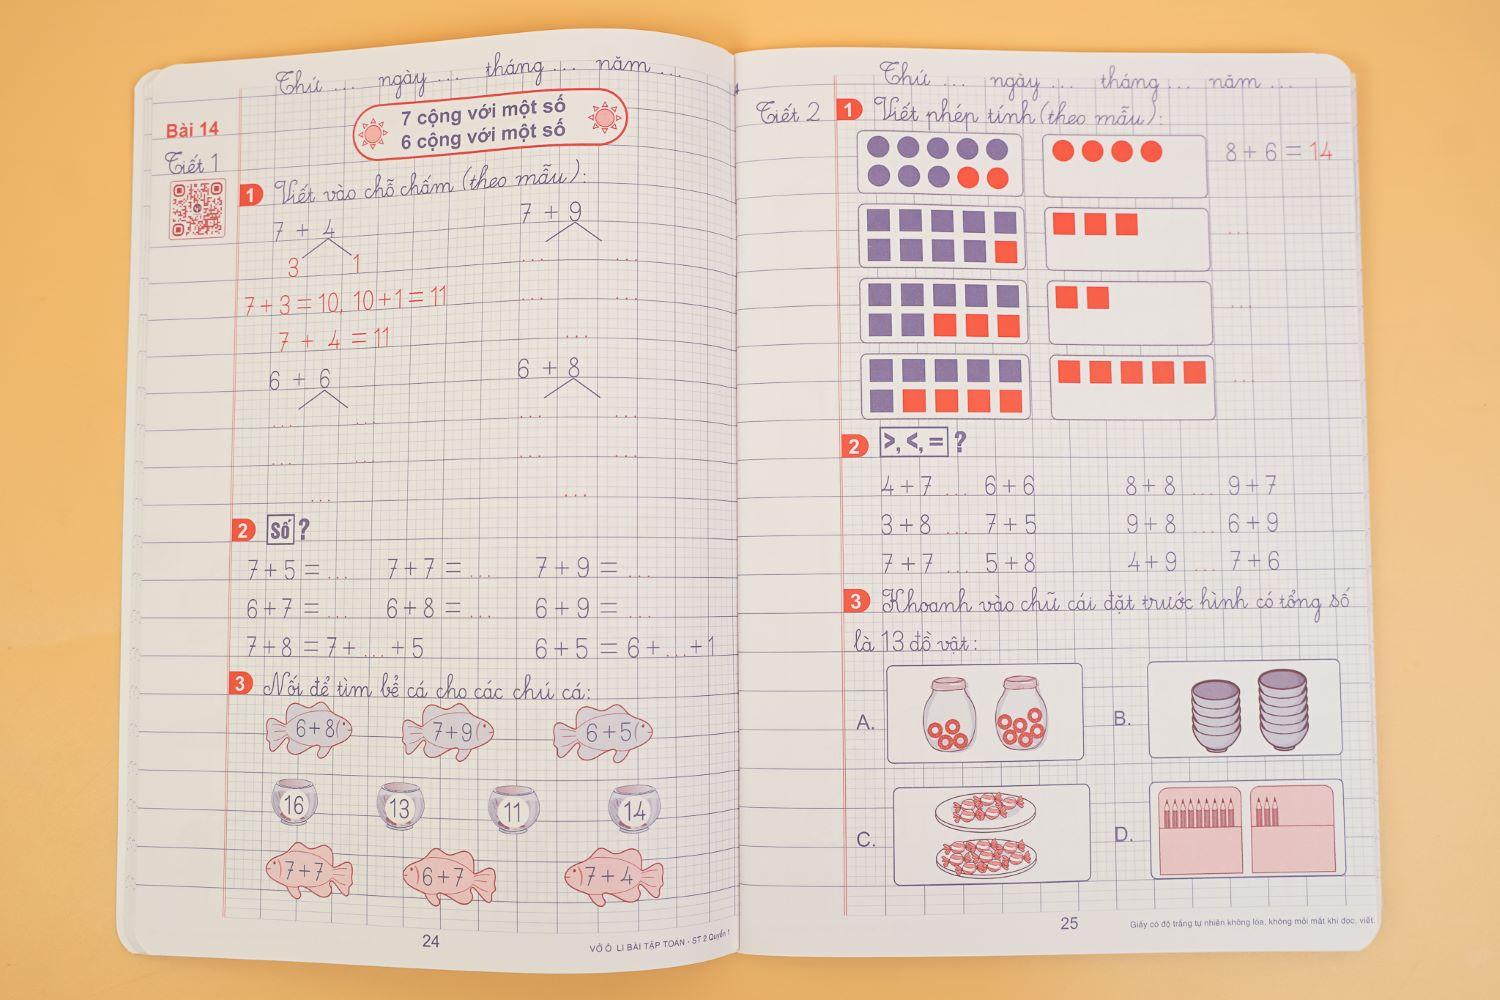 Thứ ... ngày ... tháng ... năm ...
Bài 14
7 cộng với một số
6 cộng với một số
Tiết 1
1 Viết vào chỗ chấm (theo mẫu):
7 + 4
3 1
7 + 3 = 10, 10 + 1 = 11
7 + 4 = 11
7 + 9
... ...
... ...
...
6 + 6
... ...
... ...
...
6 + 8
... ...
... ...
...
2 Số ?
7 + 5 = ... 7 + 7 = ... 7 + 9 = ...
6 + 7 = ... 6 + 8 = ... 6 + 9 = ...
7 + 8 = 7 + ... + 5 6 + 5 = 6 + ... + 1
3 Nối để tìm bể cá cho các chú cá:
6 + 8 7 + 9 6 + 5
16 13 11 14
7 + 7 6 + 7 7 + 4
24
VỞ Ô LI BÀI TẬP TOÁN - ST 2 Quyển 1
Thứ ... ngày ... tháng ... năm ...
Tiết 2
1 Viết phép tính (theo mẫu):
8 + 6 = 14
...
...
...
2 >, <, = ?
4 + 7 ... 6 + 6 8 + 8 ... 9 + 7
3 + 8 ... 7 + 5 9 + 8 ... 6 + 9
7 + 7 ... 5 + 8 4 + 9 ... 7 + 6
3 Khoanh vào chữ cái đặt trước hình có tổng số
là 13 đồ vật:
A. B.
C. D.
25
Giấy có độ trắng tự nhiên không lóa, không mỏi mắt khi đọc, viết.